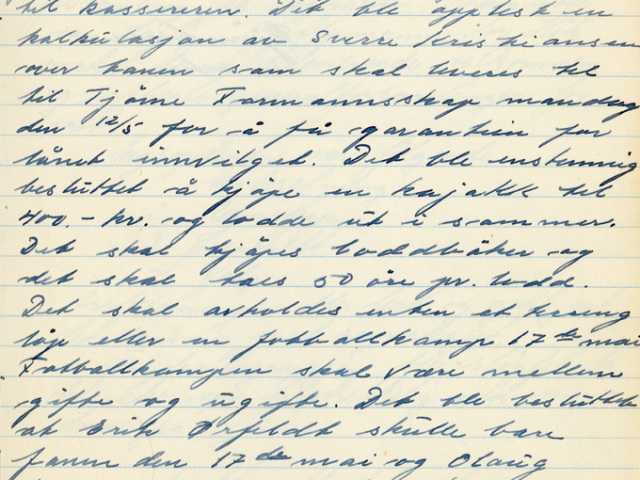 til kassereren. Det ble opplest en
kalkulasjon av Sverre Kristiansen
over banen som skal leveres til
til Tjøme Formannsskap mandag
den 12/5 for å få garantien for
lånet innvilget. Det ble enstemmig
besluttet å kjøpe en kajakk til
400,- kr. og lodde ut i sommer.
Det skal kjøpes loddbøker og
det skal taes 50 öre pr. lodd.
Det skal avholdes enten et terreng
løp eller en fotballkamp 17de mai
Fotballkampen skal være mellem
gifte og ugifte. Det ble besluttet
at Erik Ørfeldt skulle bære
fanen den 17de mai og Olaug